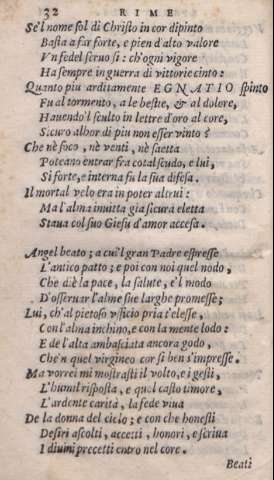 32 RIME
Se'l nome sol di Christo in cor dipinto
Basta a far forte, e pien d'alto valore
Vn fedel seruo sì: ch'ogni vigore
Ha sempre in guerra di vittorie cinto:
Quanto più arditamente EGNATIO spinto
Fu al tormento, a le bestie, & al dolore,
Hauendo'l sculto in lettre d'oro al core,
Sicuro alhor di piu non esser vinto?
Che nè foco, nè venti, nè saetta
Poteano entrar fra cotal scudo, e lui,
Sì forte, e interna fu la sua difesa.
Il mortal velo era in poter altrui:
Ma l'alma inuitta già sicura eletta
Staua col suo Giesu d'amor accesa.
Angel beato; a cui'l gran Padre espresse
L'antico patto; e poi con noi quel nodo,
Che diè la pace, la salute, e'l modo
D'osseruar l'alme sue larghe promesse;
Lui, ch'al pietoso vficio pria t'elesse,
Con l'alma inchino, e con la mente lodo:
E de l'alta ambasciata ancora godo,
Che'n quel virgineo cor sì ben s'impresse.
Ma vorrei mi mostrasti il volto, e i gesti,
L'humil risposta, e quel casto timore,
L'ardente carità, la fede viua
De la donna del cielo; e con che honesti
Desiri ascolti, accetti, honori, e scriua
I diuini precetti entro nel core.
Beati